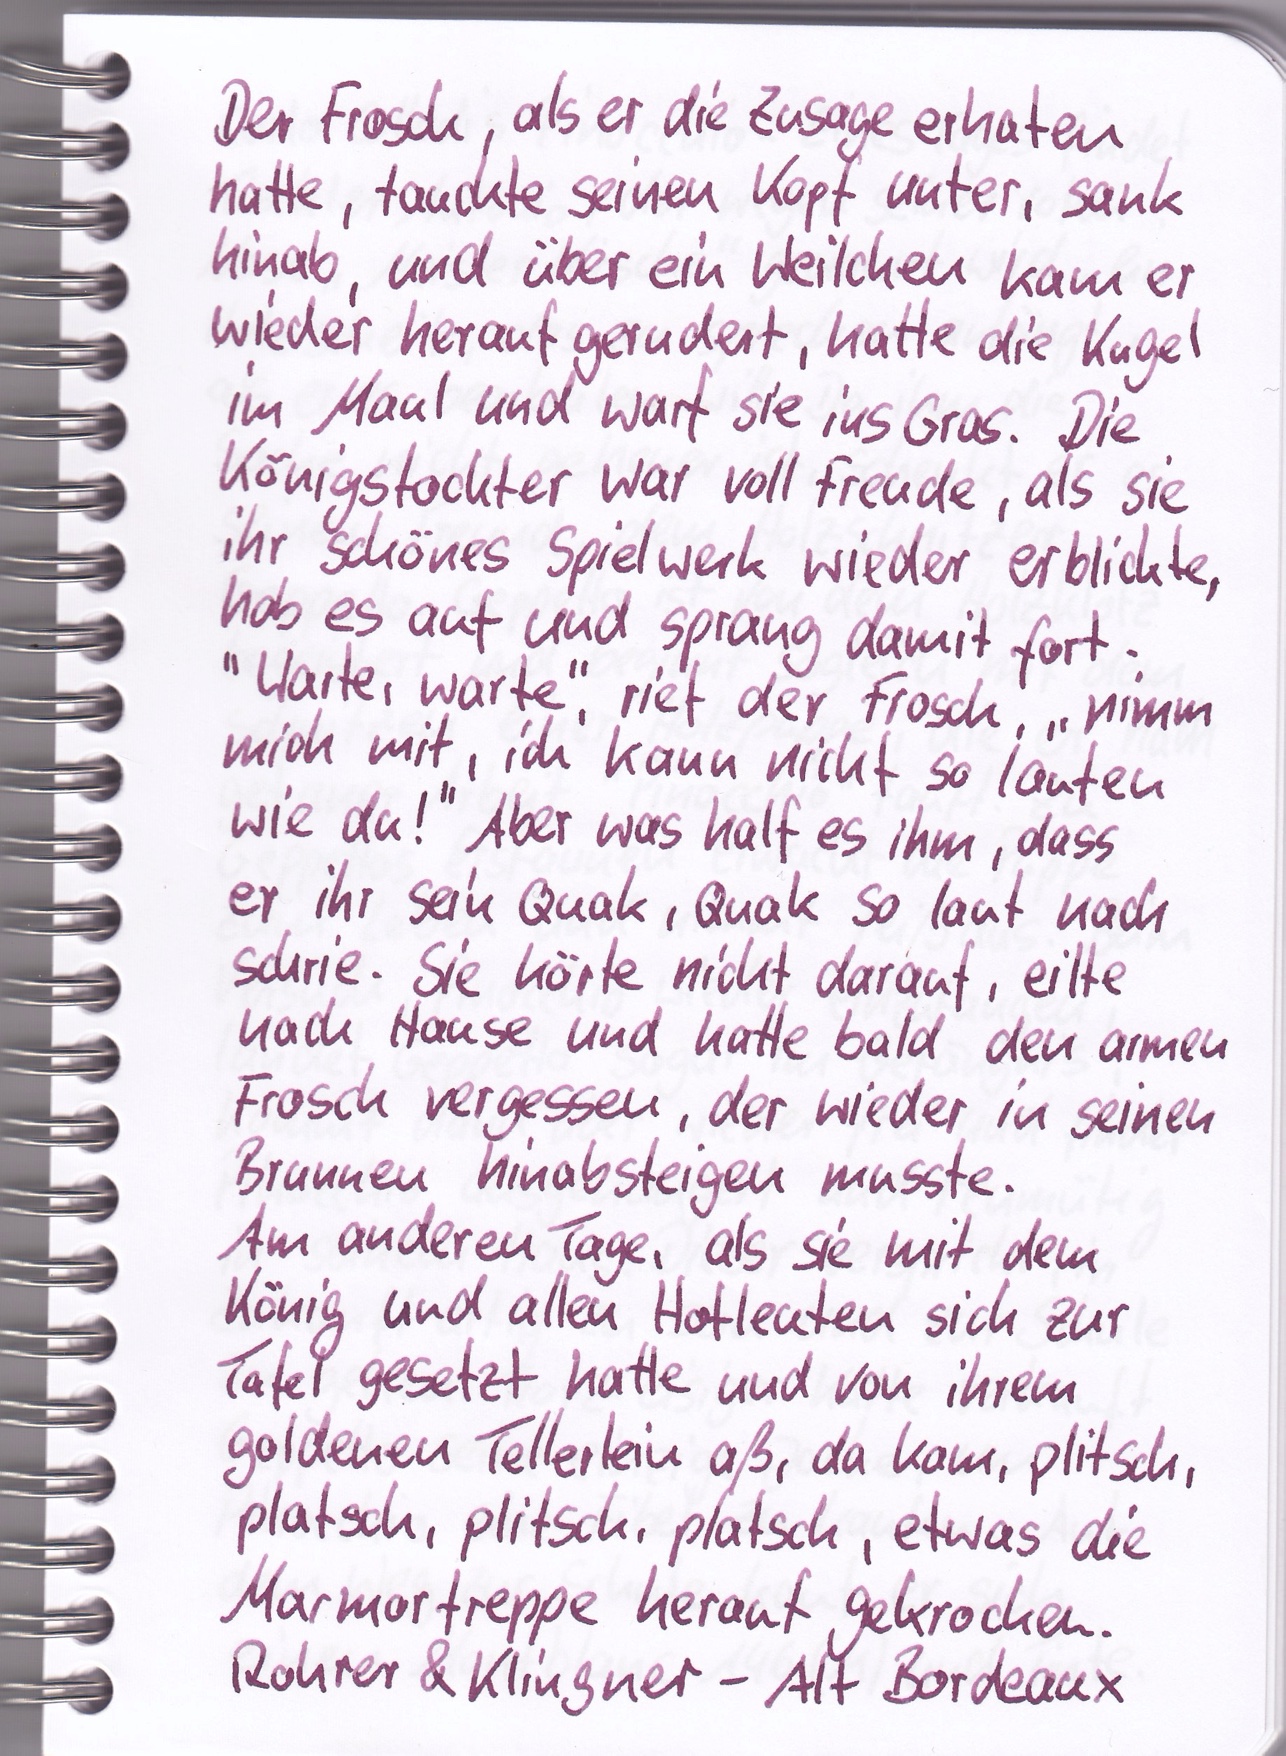 Der Frosch, als er die Zusage erhaten
hatte, tauchte seinen Kopf unter, sank
hinab, und über ein Weilchen kam er
wieder herauf gerudert, hatte die Kugel
im Maul und warf sie ins Gras. Die
Königstochter war voll Freude, als sie
ihr schönes Spielwerk wieder erblickte,
hob es auf und sprang damit fort.
"Warte, warte", rief der Frosch, „nimm
mich mit, ich kann nicht so laufen
wie du!" Aber was half es ihm, dass
er ihr sein Quak, Quak so laut nach
schrie. Sie hörte nicht darauf, eilte
nach Hause und hatte bald den armen
Frosch vergessen, der wieder in seinen
Brunnen hinabsteigen musste.
Am anderen Tage, als sie mit dem
König und allen Hofleuten sich zur
Tafel gesetzt hatte und von ihrem
goldenen Tellerlein aß, da kam, plitsch,
platsch, plitsch, platsch, etwas die
Marmortreppe herauf gekrochen.
Rohrer & Klingner - Alt Bordeaux